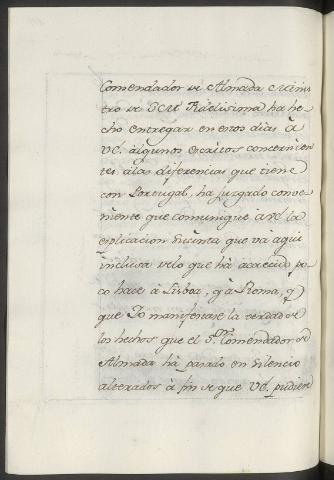 Comendador de Almada Minis
tro de S.M. Fidelisima ha he
cho entregar en estos dias à
Vd. algunos escritos concernien
tes alas diferencias que tiene
con Portugal, ha juzgado conve
niente que comunique à vd la
esplicacion sucinta que và aqui
inclusa delo que hà acaecido po
co hace à Lisboa, y à Roma, y
que Yo manifestase la verdad de
los hechos que el Sor. Comendador de
Almada hà pasado en silencio
alterados à fin de que Vd. pudiese